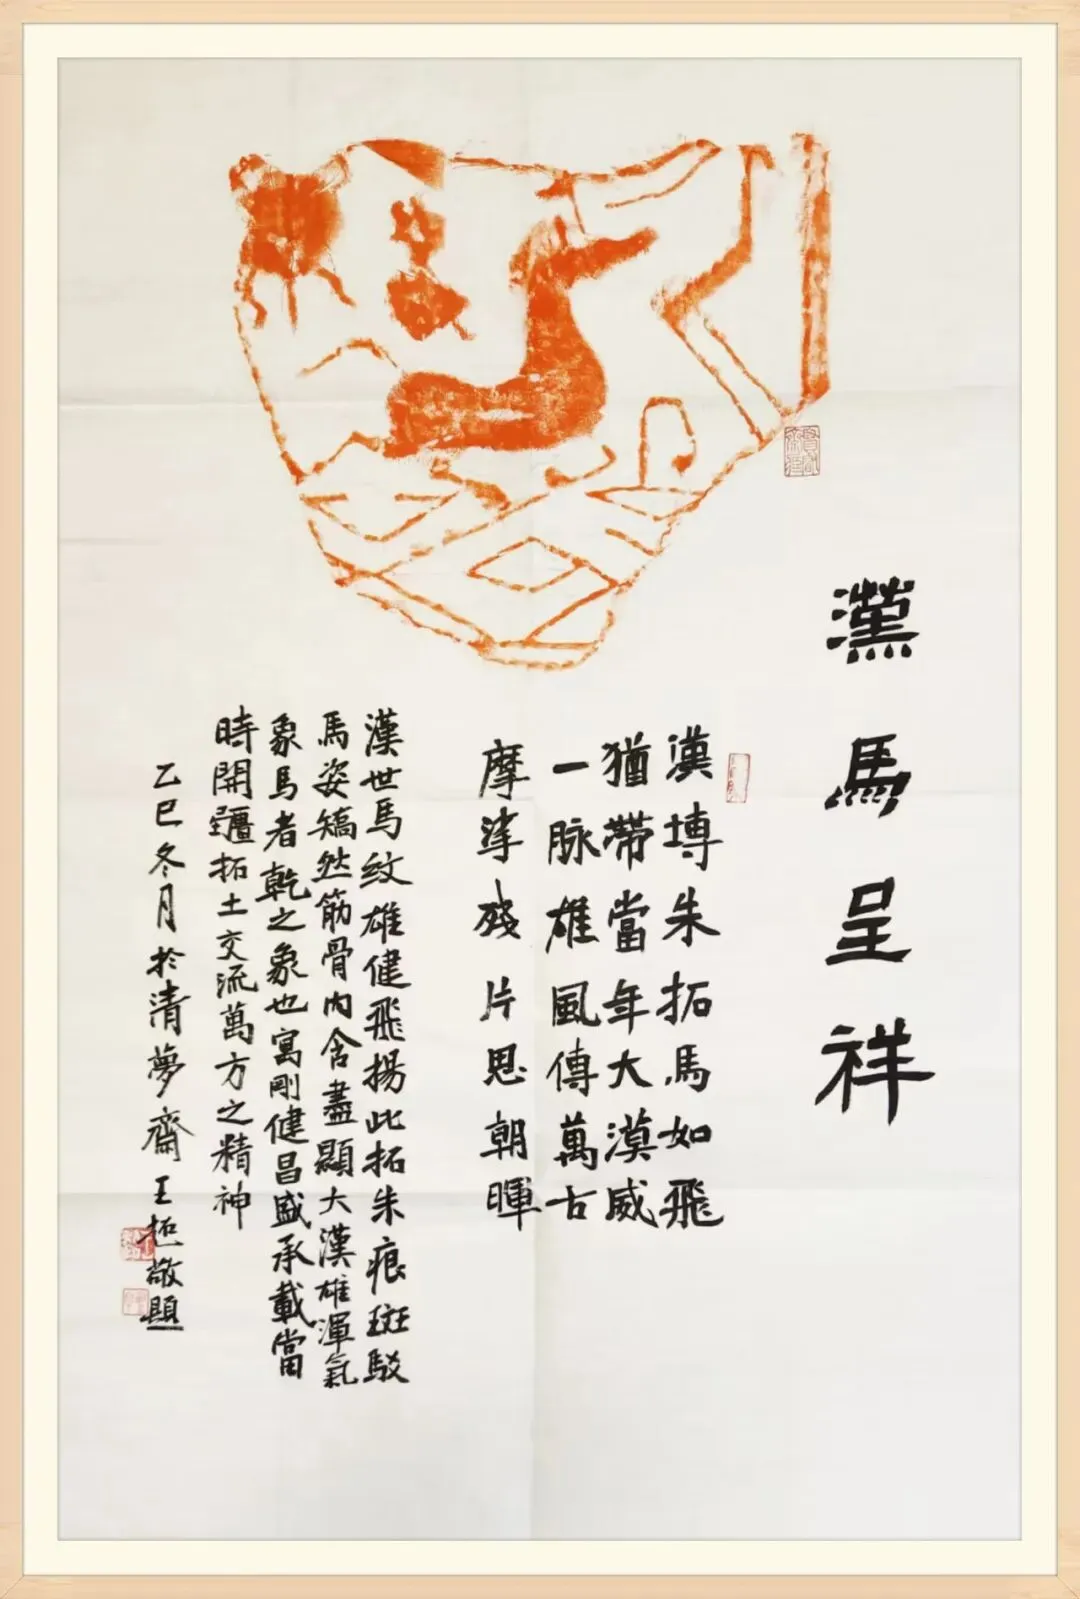 漢馬呈祥
漢塼朱拓馬如飛
猶帶當年大漠威
一脉雄風傳萬古
摩挲殘片思朝暉
漢世馬紋雄健飛揚此拓朱痕斑駁
馬姿矯然筋骨内含盡顯大漢雄渾氣
象馬者乾之象也寓剛健昌盛承載當
時開疆拓土交流萬方之精神
乙巳冬月於清夢齋王 敬題